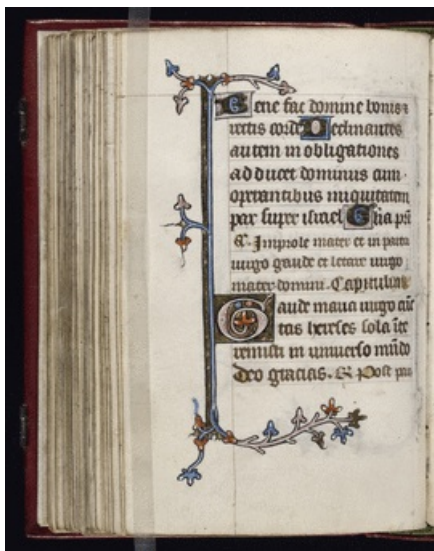 Bene fac domine bonis &
rectis corde Declinantes
autem in obligationes
adducet dominus cum
operantibus iniquitatem
pax super israel Gl'ia p̃ri
&. Inviole mater et in partu
uirgo gaude et letare uirgo
mater domini. Capitulum
Gaude maria uirgo cũc
tas hereses sola ĩte
remisti in uniuerso mũdo
deo gracias. R Post par